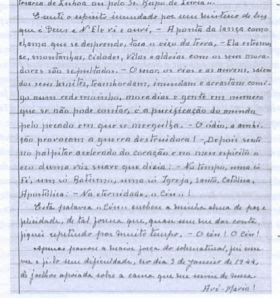 triarca de Lisboa ou pelo Sr. Bispo de Leiria".
E senti o espírito inundado por um mistério de luz
que é Deus e N'Ele vi e ouvi, - A ponta da lança como
chama que se desprende, toca o eixo da terra, - Ela estreme-
ce, montanhas, cidades, vilas e aldeias com os seus mora-
dores são sepultados. - O mar, os rios e as nuvens, saem
dos seus limites, transbordam, inundam e arrastam consi-
go num redemoinho, moradias e gente em número
que se não pode contar, é a purificação do mundo
pelo pecado em que se mergulha. - O ódio, a ambi-
ção provocam a guerra destruidora! - Depois senti
no palpitar acelerado do coração e no meu espírito
uma voz suave que dizia: - No tempo, uma só
Fé, um só Batismo, uma só Igreja, Santa, Católica,
Apostólica: - Na eternidade, o Céu!
Esta palavra "Céu" encheu a minha alma de paz e
felicidade, de tal forma que, quasi sem me dar conta,
fiquei repetindo por muito tempo, - O Céu! O Céu!
Apenas passou a maior força do sobrenatural, fui
e o fiz sem dificuldade, no dia 3 de Janeiro de 1944,
de joelhos apoiada sobre a cama que me serviu de mesa.
Avé-Maria!